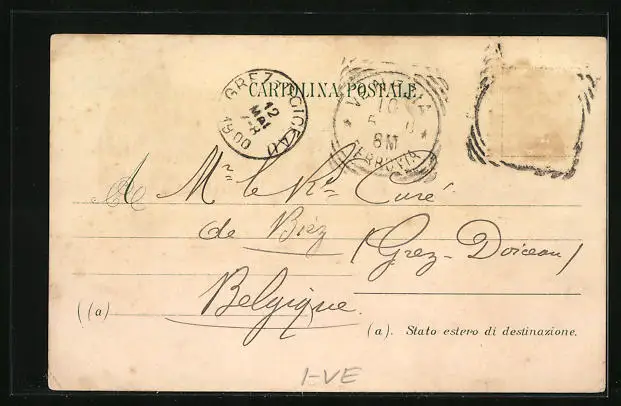 CARTOLINA POSTALE
GREZ-DOICEAU
12
MAI
7-8
1900
VENEZIA
10
5
6M
FERROVIA
A Mr le Rd Curé
de Biéz (Grez-Doiceau)
Belgique.
((a)
(a). Stato estero di destinazione.
I-VE